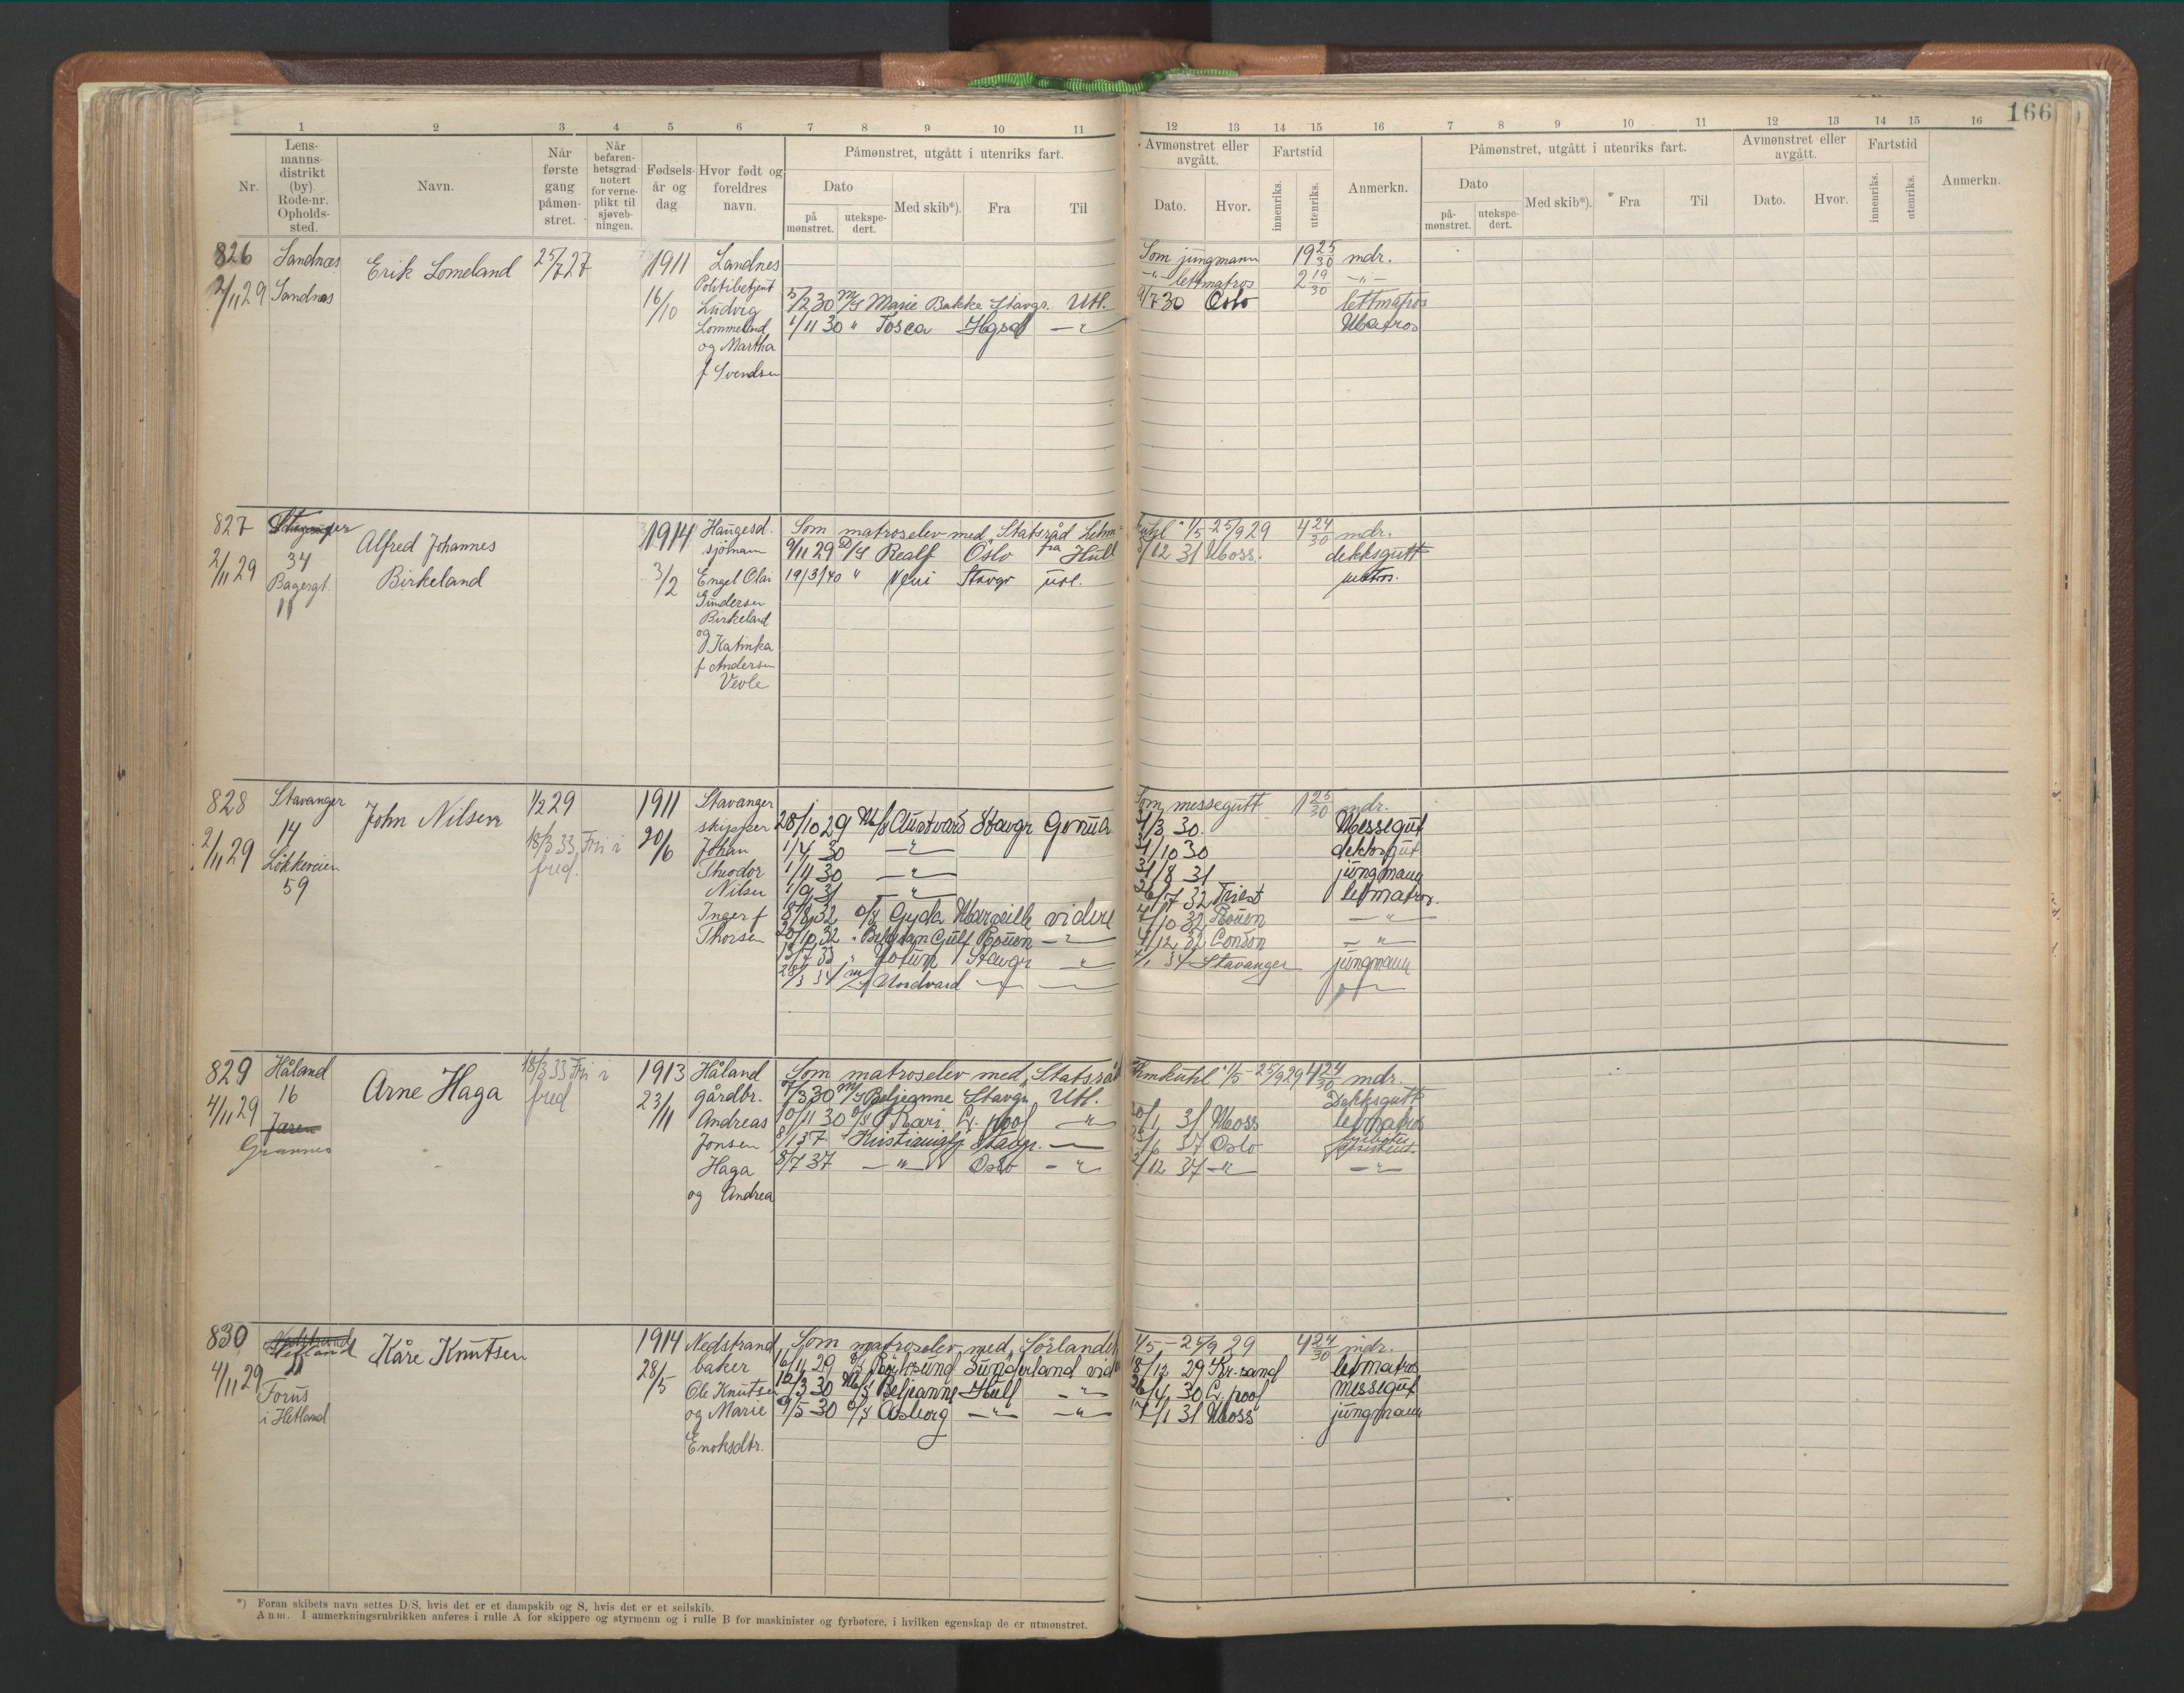 166
1 2 3 4 5 6 7 8 9 10 11 12 13 14 15 16 7 8 9 10 11 12 13 14 15 16
Nr.
Lens-
manns-
distrikt
(by)
Rode-nr.
Opholds-
sted.
Navn.
Når
første
gang
påmøn-
stret.
Når
befaren-
hetsgrad
notert
for verne-
plikt til
sjøveb-
ningen.
Fødsels-
år og
dag
Hvor født og
foreldres
navn.
Påmønstret, utgått i utenriks fart.
Dato
på
mønstret.
utekspe-
dert.
Med skib*).
Fra
Til
Avmønstret eller
avgått.
Dato.
Hvor.
Fartstid
innenriks.
utenriks.
Anmerkn.
Påmønstret, utgått i utenriks fart.
Dato
på-
mønstret.
utekspe-
dert.
Med skib*).
Fra
Til
Avmønstret eller
avgått.
Dato.
Hvor.
Fartstid
innenriks.
utenriks.
Anmerkn.
826
2/11 29
Sandnes
Sandnes
Erik Lomeland
25/7 27
1911
16/10
Sandnes
Politibetjent
Ludvig
Lommeland
og Martha
f Svendsen
Som jungmann 19 25/30 mdr.
-"- lettmatros 2 19/30 -"-
5/2 30 M/S Marie Bakke Stavgr. Utl. 9/7 30 Oslo lettmatros
1/11 30 " Tosca Hgsd -"- Matros
827
2/11 29
Stavanger
34
Bagergt.
11
Alfred Johannes
Birkeland
1914
3/2
Haugesd.
sjømann
Engel Olai
Gundersen
Birkeland
og
Katinka
f Andersen
Vevle
Som matroselev med "Statsråd Lehm-
kuhl" 1/5-25/9 29 4 24/30 mdr.
9/11 29 D/S Realf Oslo fra Hull /12 31 Moss. dekksgutt
19/3/40 " Stavgr utl. matros.
828
2/11 29
Stavanger
14
Løkkeveien
59
John Nilsen
1/2 29
18/3 33 Fri i
fred.
1911
20/6
Stavanger
skipper
Johan
Theodor
Nilsen
Inger f
Thorsen
Som messegutt 1 26/30 mdr.
28/10 29 M/S Austvard Stavgr Genua 31/3 30. Messegut
1/4 30 -"- 31/10 30 dekksgut
1/11 30 -"- 31/8 31 jungmann
1/9 31 -"- 26/7 32 Triest letmatros.
8/8 32 Gyda Marseille videre /10 32 Rouen -"-
20/10 32 " Belgian Gulf Rouen -"- /12 32 London -"-
13/7 33 " Jotun Stavgr " /1 34 Stavanger jungmann
28/3 34 M/S Nordvard -"-
829
4/11 29
Håland
16
Jæren
Grannes
Arne Haga
18/3 33 Fri i
fred
1913
23/11
Håland
gårdbr.
Andreas
Jonsen
Haga
og Andrea
Som matroselev med "Statsråd
Lehmkuhl" 1/5-25/9 29 4 24/30 mdr.
7/3 30 M/S Beljeanne Stavgr. Utl. Dekksgutt
10/11 30 Kari Lv. pool " /1 31 Moss letmatros
8/1 37 " Kristianiafj Stavgr. 25/6 37 Oslo
8/7 37 -"- Oslo -"- 2/12 37 -"- -"-
830
4/11 29
Hetland
11
Forus
i Hetland
Kåre Knutsen
1914
28/5
Nedstrand
baker
Ole Knutsen
og Marie
Enoksdtr.
Som matroselev med "Sørlandet"
1/5-25/9 29 4 24/30 mdr.
16/11 29 Sunderland vid 18/12 29 Kr.sand letmatros
12/3 30 M/S Beljeanne Hull -"- 26/4 30 Lv. pool messegut
9/5 30 Asborg -"- -"- 17/1 31 Moss jungmann
*) Foran skibets navn settes D/S, hvis det er et dampskib og S, hvis det er et seilskib.
Anm. I anmerkningsrubrikken anføres i rulle A for skippere og styrmenn og i rulle B for maskinister og fyrbøtere, i hvilken egenskap de er utmønstret.